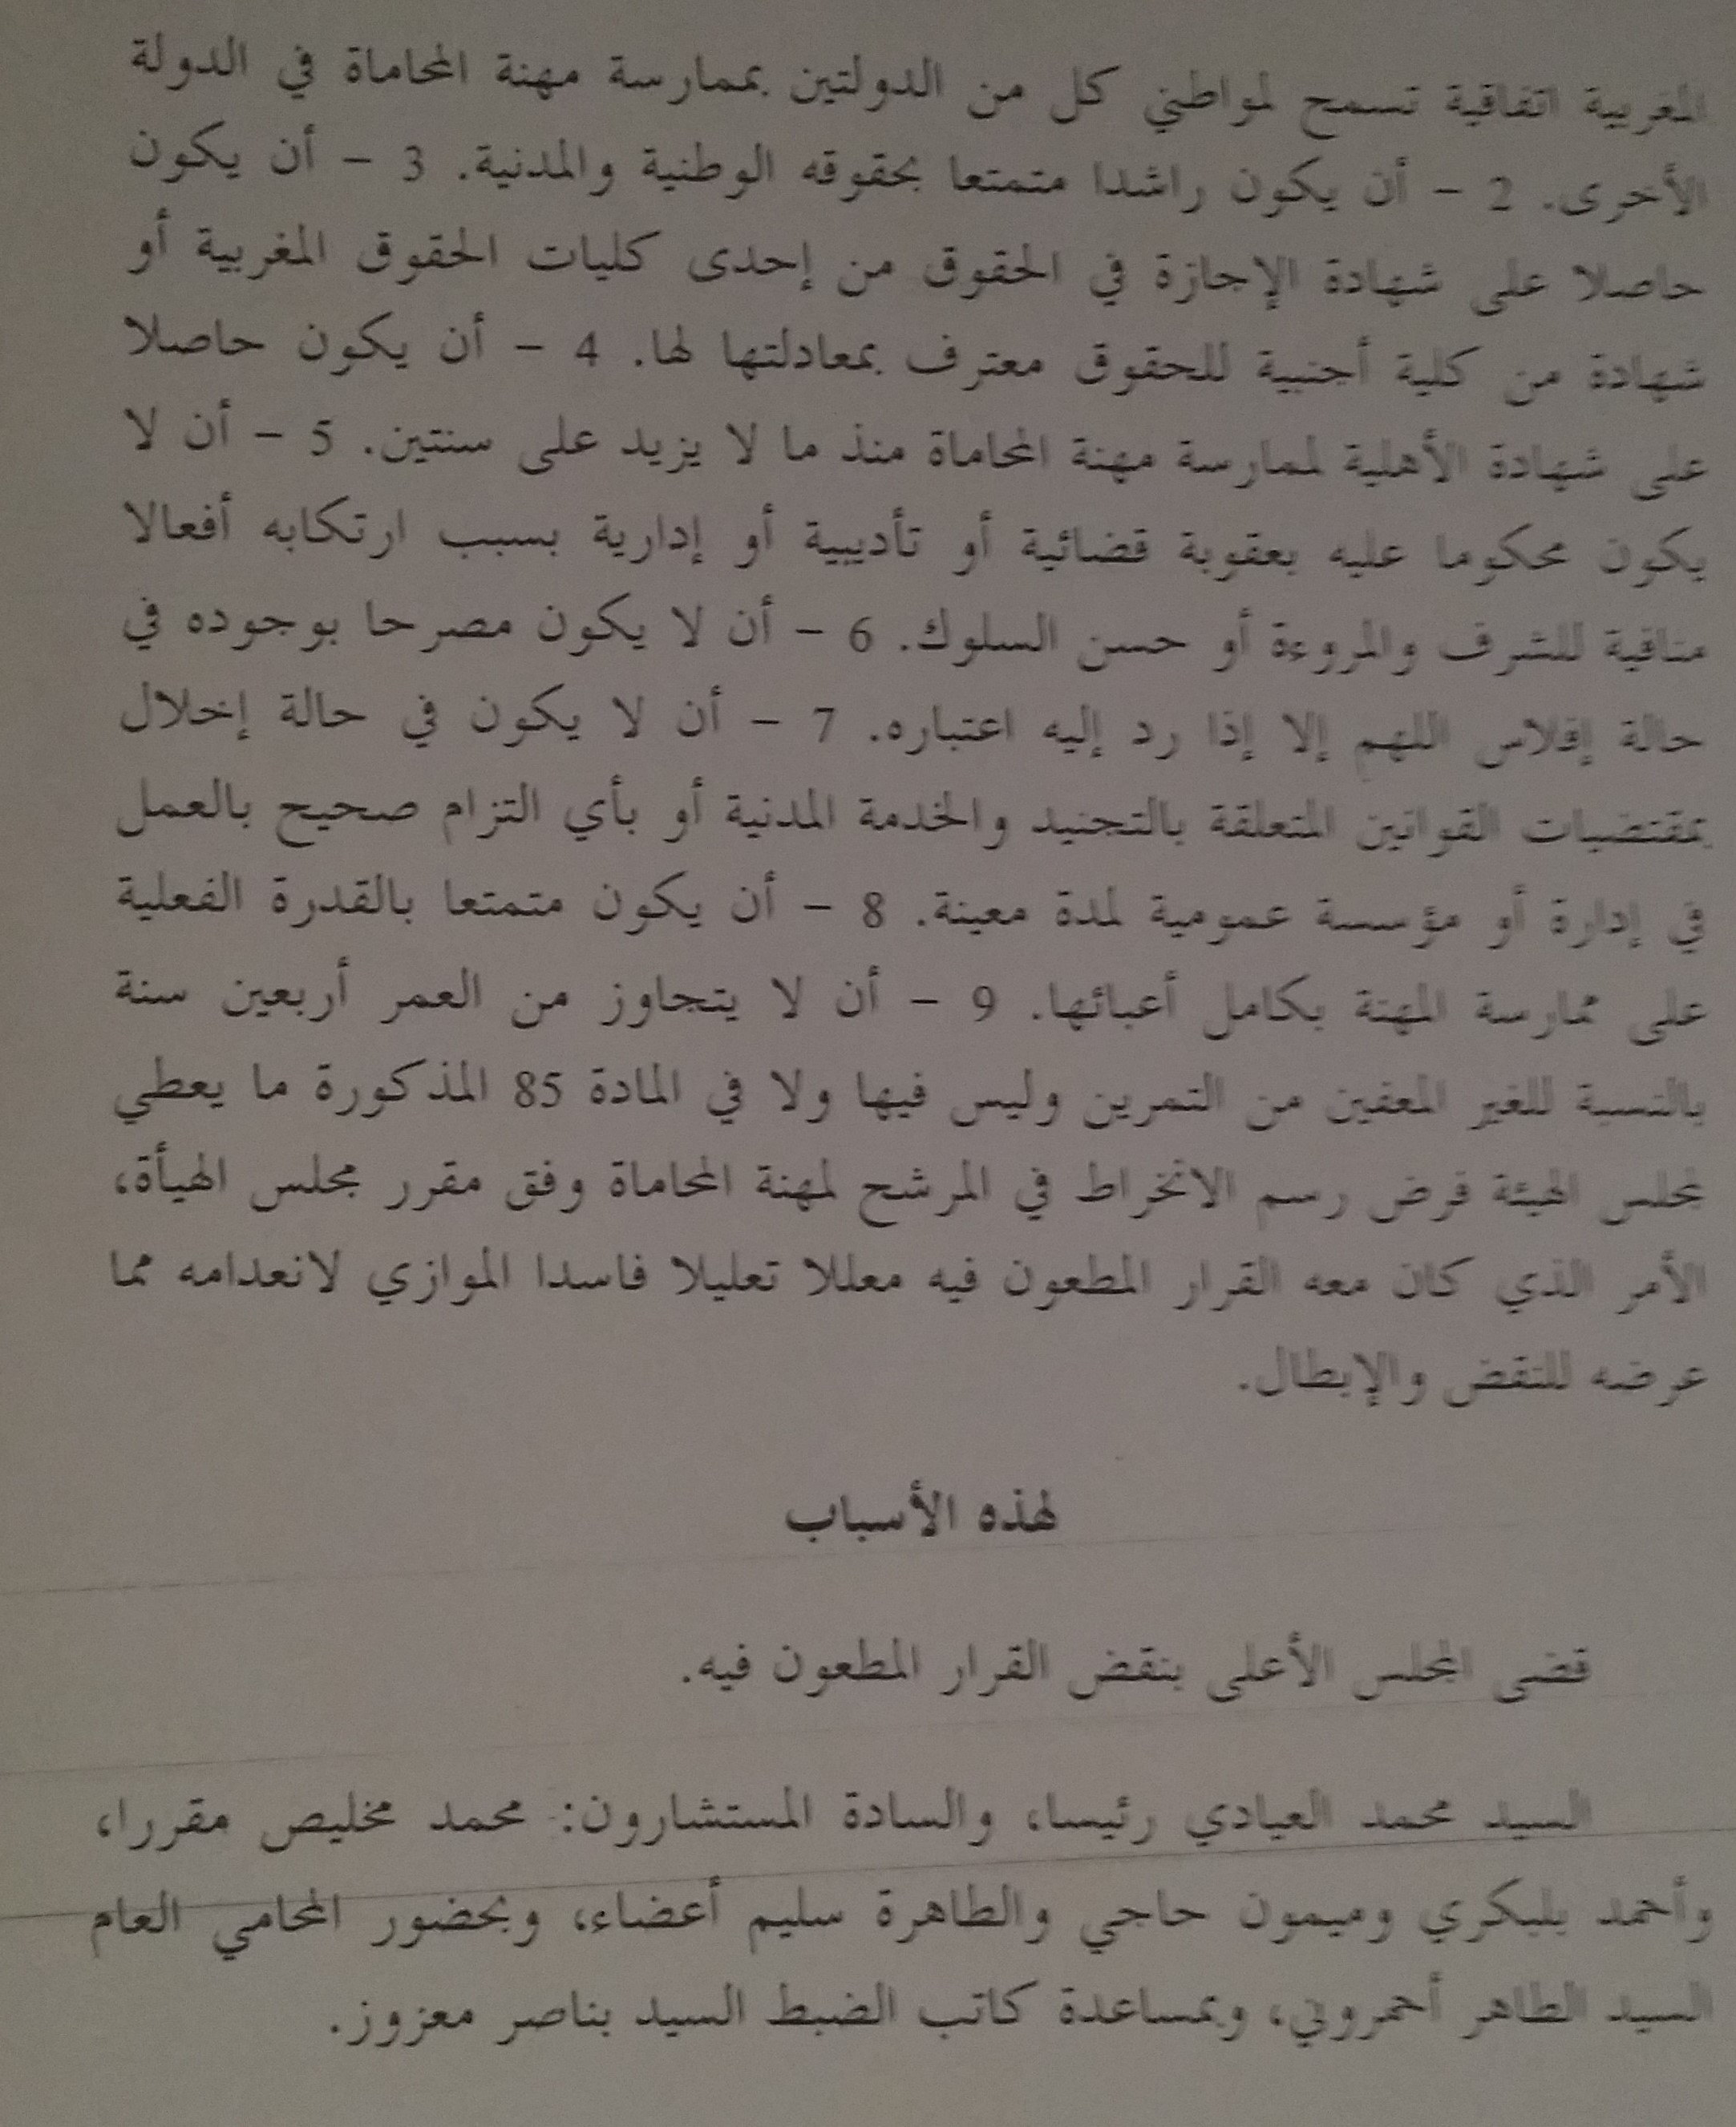 المغربية اتفاقية تسمح لمواطني كل من الدولتين بممارسة مهنة المحاماة في الدولة
الأخرى. 2 - أن يكون راشدا متمتعا بحقوقه الوطنية والمدنية. 3 - أن يكون
حاصلا على شهادة الإجازة في الحقوق من إحدى كليات الحقوق المغربية أو
شهادة من كلية أجنبية للحقوق معترف بمعادلتها لها. 4 - أن يكون حاصلا
على شهادة الأهلية لممارسة مهنة المحاماة منذ ما لا يزيد على سنتين. 5 - أن لا
يكون محكوما عليه بعقوبة قضائية أو تأديبية أو إدارية بسبب ارتكابه أفعالا
منافية للشرف والمروءة أو حسن السلوك. 6 - أن لا يكون مصرحا بوجوده في
حالة إفلاس اللهم إلا إذا رد إليه اعتباره. 7 - أن لا يكون في حالة إخلال
بمقتضيات القوانين المتعلقة بالتجنيد والخدمة المدنية أو بأي التزام صحيح بالعمل
في إدارة أو مؤسسة عمومية لمدة معينة. 8 - أن يكون متمتعا بالقدرة الفعلية
على ممارسة المهنة بكامل أعبائها. 9 - أن لا يتجاوز من العمر أربعين سنة
بالنسبة للغير المعفين من التمرين وليس فيها ولا في المادة 85 المذكورة ما يعطي
لمجلس الهيئة فرض رسم الانخراط في المرشح لمهنة المحاماة وفق مقرر مجلس الهيأة،
الأمر الذي كان معه القرار المطعون فيه معللا تعليلا فاسدا الموازي لانعدامه مما
عرضه للنقض والإبطال.
لهذه الأسباب
قضى المجلس الأعلى بنقض القرار المطعون فيه.
السيد محمد العيادي رئيسا، والسادة المستشارون: محمد مخليص مقررا،
وأحمد بلبكري وميمون حاجي والطاهرة سليم أعضاء، وبحضور المحامي العام
السيد الطاهر أحمروني، وبمساعدة كاتب الضبط السيد بناصر معزوز.